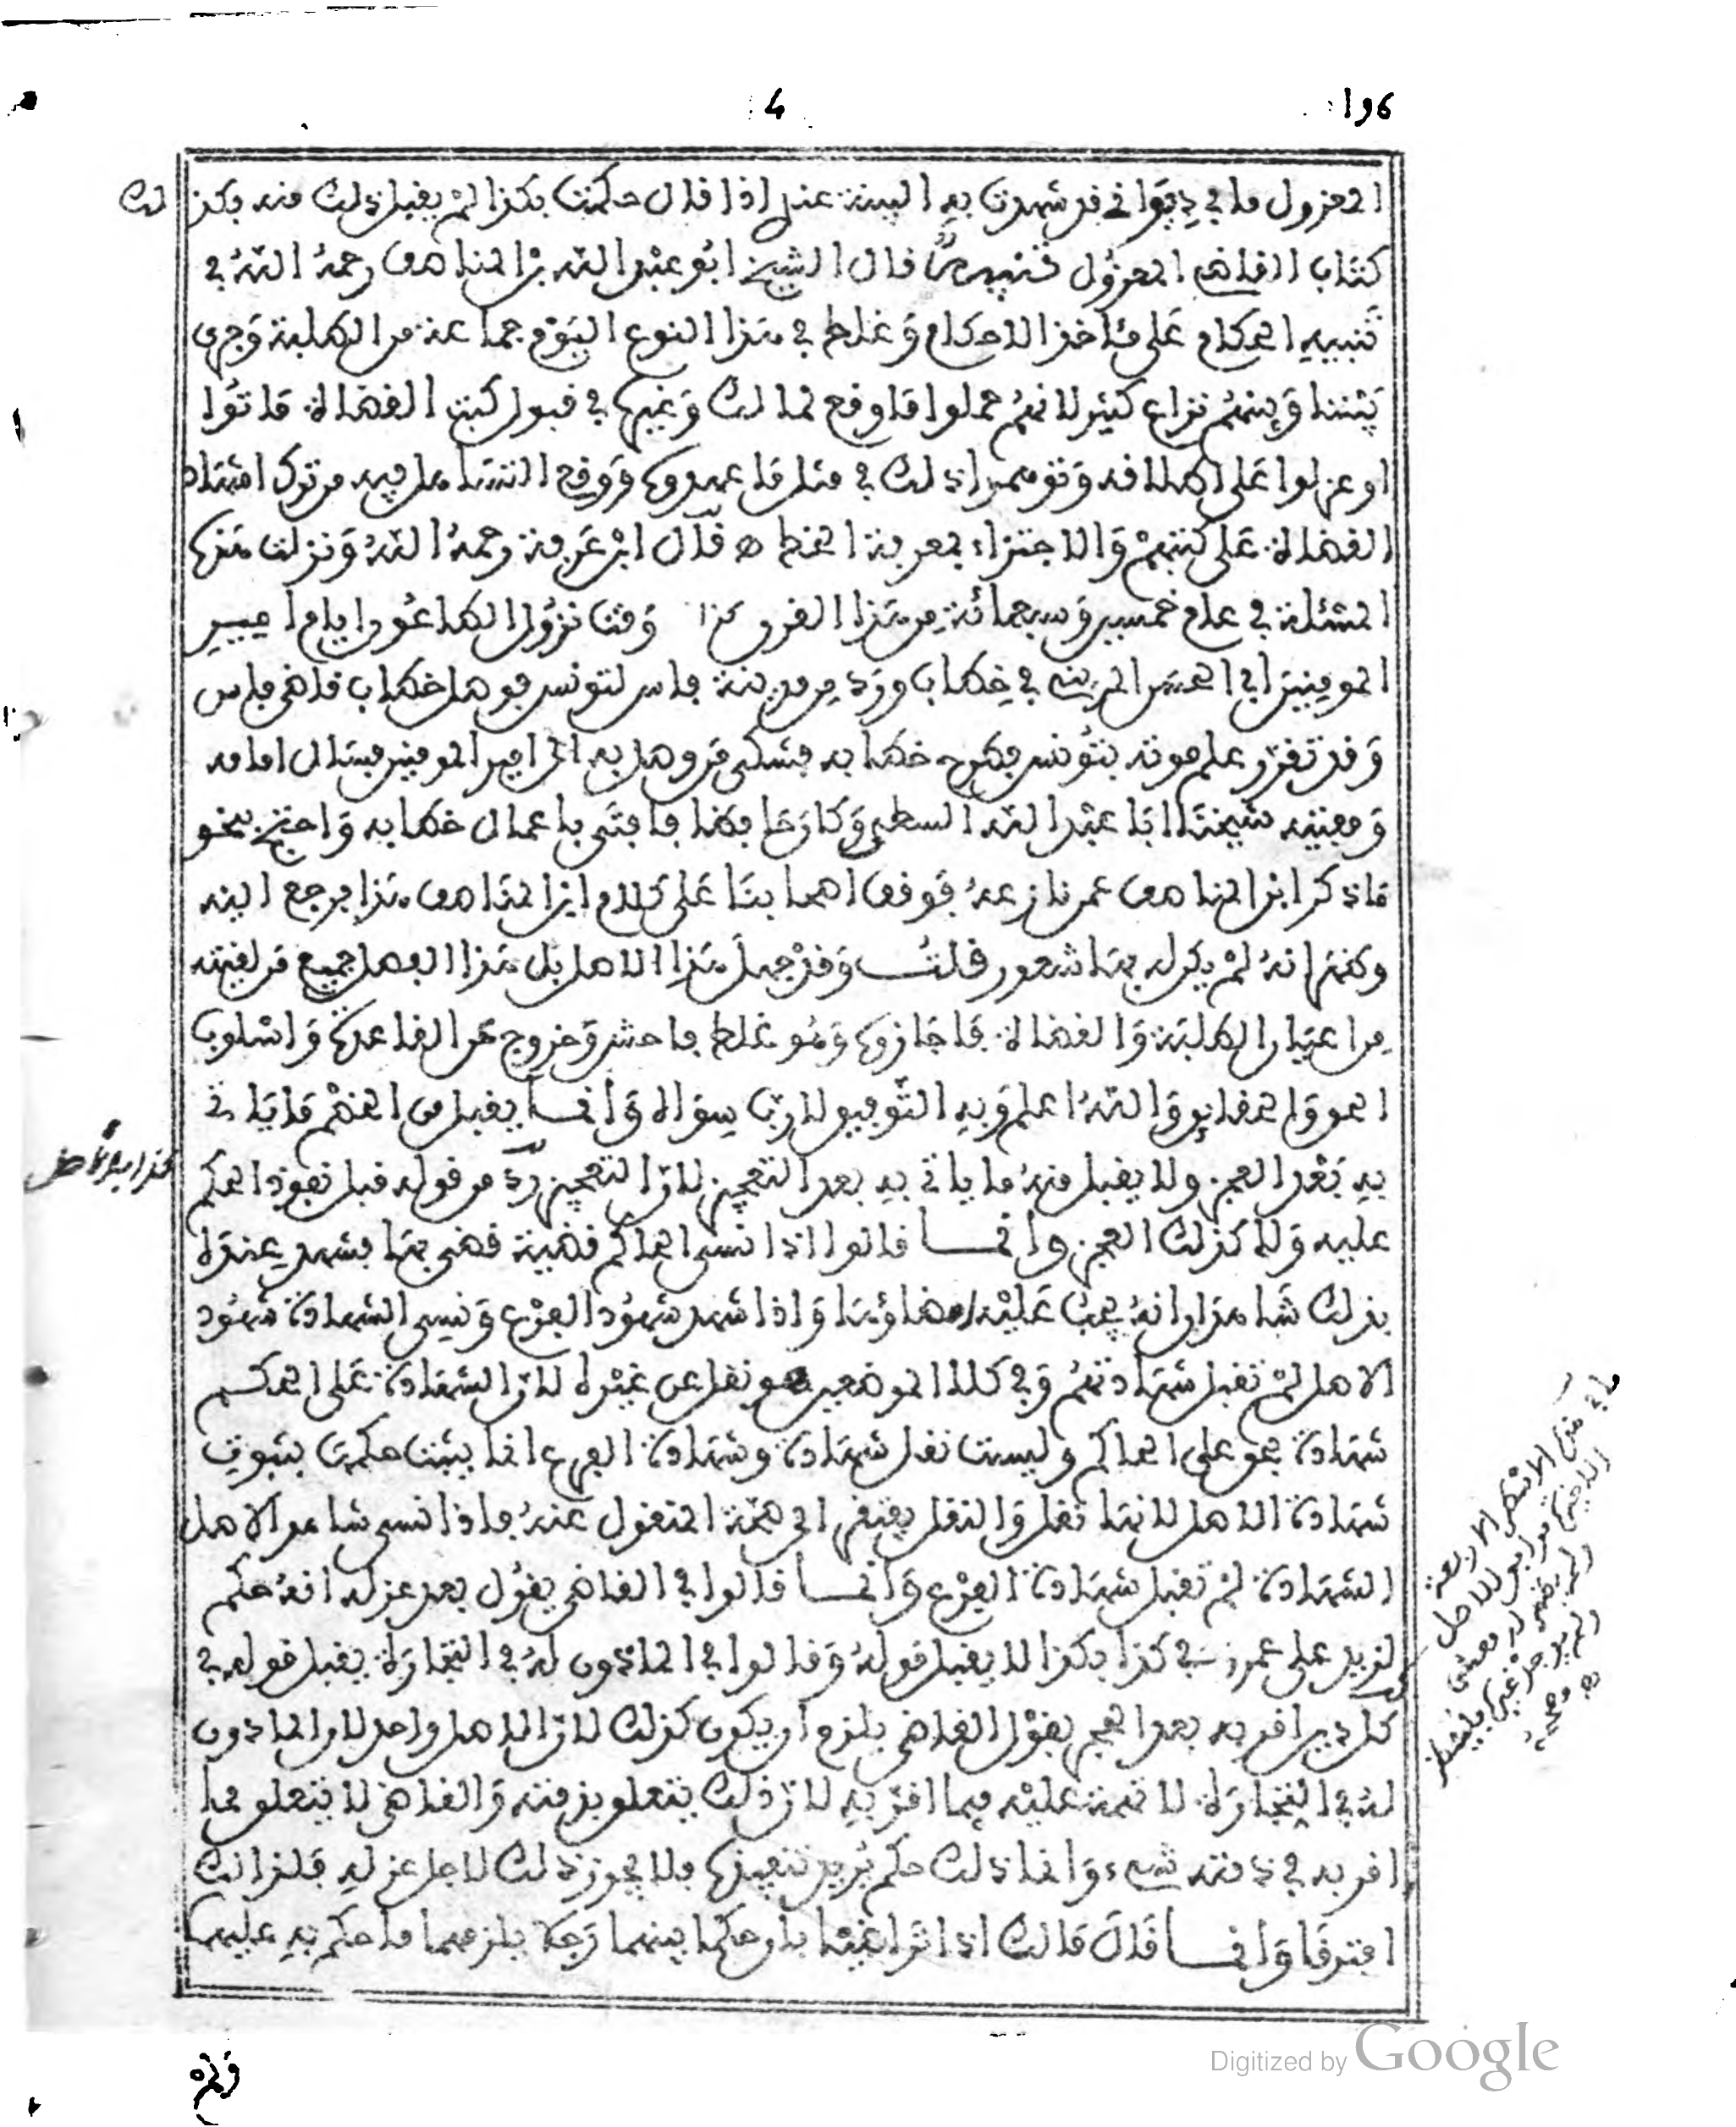 196
4
المعزول ما في ديواني قد شهدت به البينة عندي اذا قال حكمت بكذا لم يقبل ذلك منه بكذلك
كتاب القاضي المعزول تنبيه قال الشيخ ابو عبد الله بن المناصف رحمه الله في
تنبيه الحكام على مئاخذ الاحكام وغلط في هذا النوع اليوم جماعة من الطلبة وجرى
بيننا وبينهم نزاع كثير لانهم حملوا ما وقع لمالك وغيره في قبول كتب القضاة ماتوا
او عزلوا على اطلاقه وتوهموا ذلك في مثل ما عهدوه ووقع التساهل فيه من ترك اشهاد
القضاة على كتبهم والاجتزاء بمعرفة الخط قال ابن عرفة رحمه الله ونزلت هذه
المسئلة في عام خمسين وسبعمائة من هذا القرن كذا وقت نزول الطاعون ايام امير
المومنين ابي الحسن المريني في خطاب ورد من مدينة فاس لتونس فوصل خطاب قاضي فاس
وقد تقرر علم موته بتونس فطرح خطابه فشكى من وصل به الى امير المومنين فسال امامه
ومفتيه شيخنا ابا عبد الله السطي وكان حافظا فافتى باعمال خطابه واحتج بنحو
ما ذكر ابن المناصف عمن نازعه فوقف اصحابنا على كلام ابن المناصف هذا فرجع اليه
وكنت انه لم يكن له بها شعور قلت وقد جهل هذا الاصل بل هذا الفصل جميع من لقيته
من اعيان الطلبة والقضاة فاجازوه وهو غلط فاحش وخروج عن القاعدة واسلوب
الحق والحقائق والله اعلم وبه التوفيق لا رب سواه وانما يقبل من الخصم ما ياتي
به بعد العجز ولا يقبل منه ما ياتي به بعد التعجيز لان التعجيز رد من قوله قبل نفوذ الحكم
عليه ولا كذلك العجز وانما قالوا اذا نسي الحاكم قضية قضى بها فشهد عنده
بذلك شاهدان انه يجب عليه امضاؤها واذا شهد شهود الفرع ونسي الشهادة شهود
الاصل لم تقبل شهادتهم وفي كلا الموضعين هو نقل عن غيره لان الشهادة على الحكم
شهادة بحق على الحاكم وليست نقل شهادة وشهادة الفرع انما يثبت حكمها بثبوت
شهادة الاصل لانها نقل والنقل يفتقر الى صحة المنقول عنه فاذا نسي شاهد الاصل
الشهادة لم تقبل شهادة الفرع وانما قالوا في القاضي يقول بعد عزله انه حكم
لزيد على عمرو في كذا بكذا لا يقبل قوله وقالوا في الماذون له في التجارة يقبل قوله في
كل دين اقر به بعد الحجر بقول القاضي يلزم ان يكون كذلك لان الاصل واحد لان الماذون
له في التجارة لا تهمة عليه فيما اقر به لان ذلك يتعلق بذمته والقاضي لا يتعلق مما
اقر به في ذمته شيء وانما ذلك حكم يريد تنفيذه فلا يجوز ذلك لاجل عزله فلذالك
افترقا وانما قال مالك اذا تراضيا بان حكما بينهما رجلا يلزمهما ما حكم به عليهما
كذا بالاصل
ولم
Digitized by Google